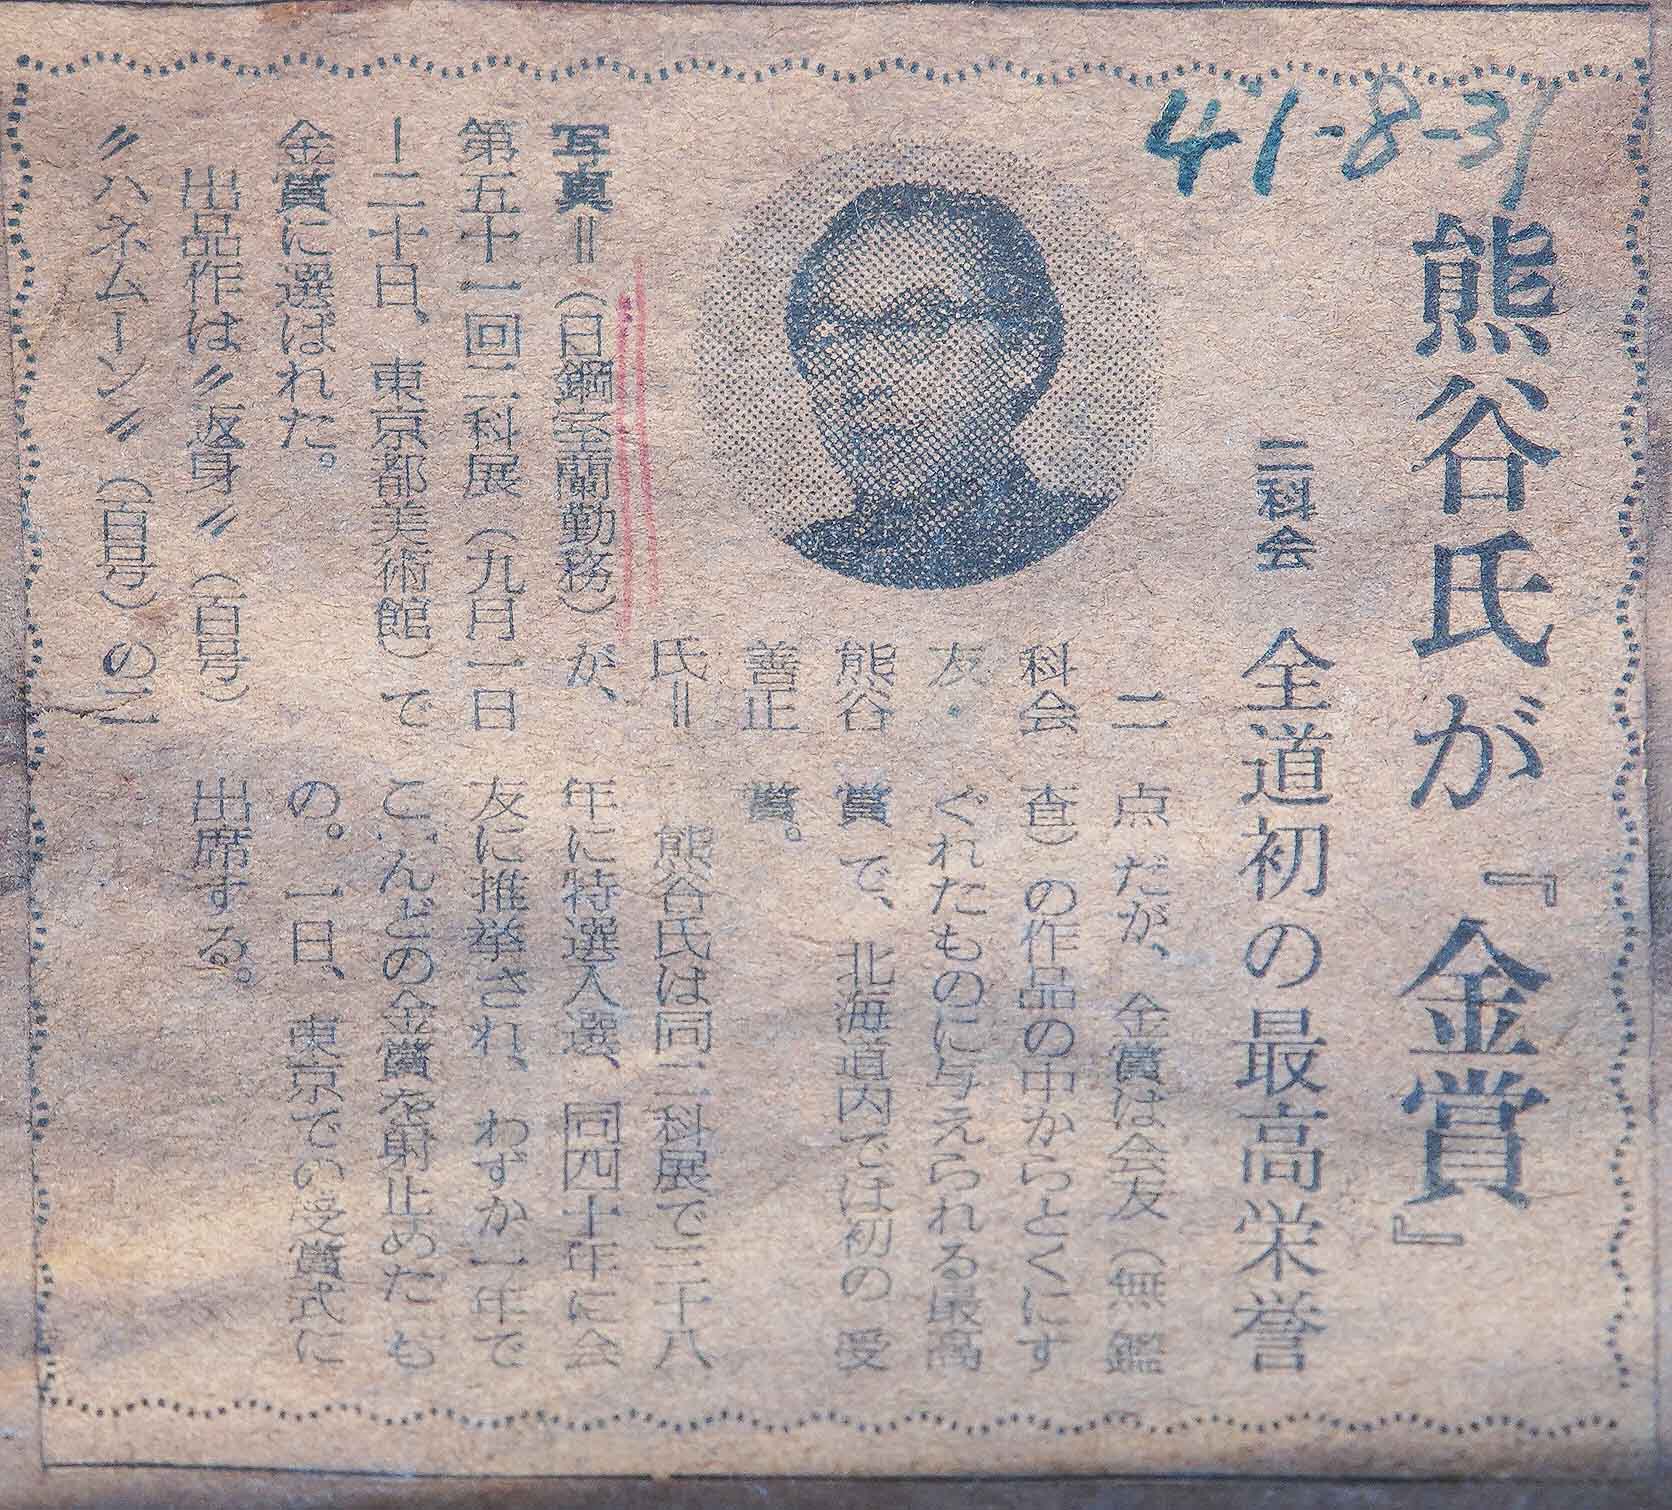 41-8-31
熊谷氏が『金賞』
二科会 全道初の最高栄誉
二
科会
友・
熊谷
善正
氏＝
写真＝（日鋼室蘭勤務）が、
第五十一回二科展（九月一日
ー二十日、東京都美術館）で
金賞に選ばれた。
出品作は〃返身〃（百号）
〃ハネムーン〃（百号）の二
点だが、金賞は会友（無鑑
査）の作品の中からとくにす
ぐれたものに与えられる最高
賞で、北海道内では初の受
賞。
熊谷氏は同二科展で三十八
年に特選入選、同四十年に会
友に推挙され、わずか一年で
こんどの金賞を射止めたも
の。一日、東京での受賞式に
出席する。